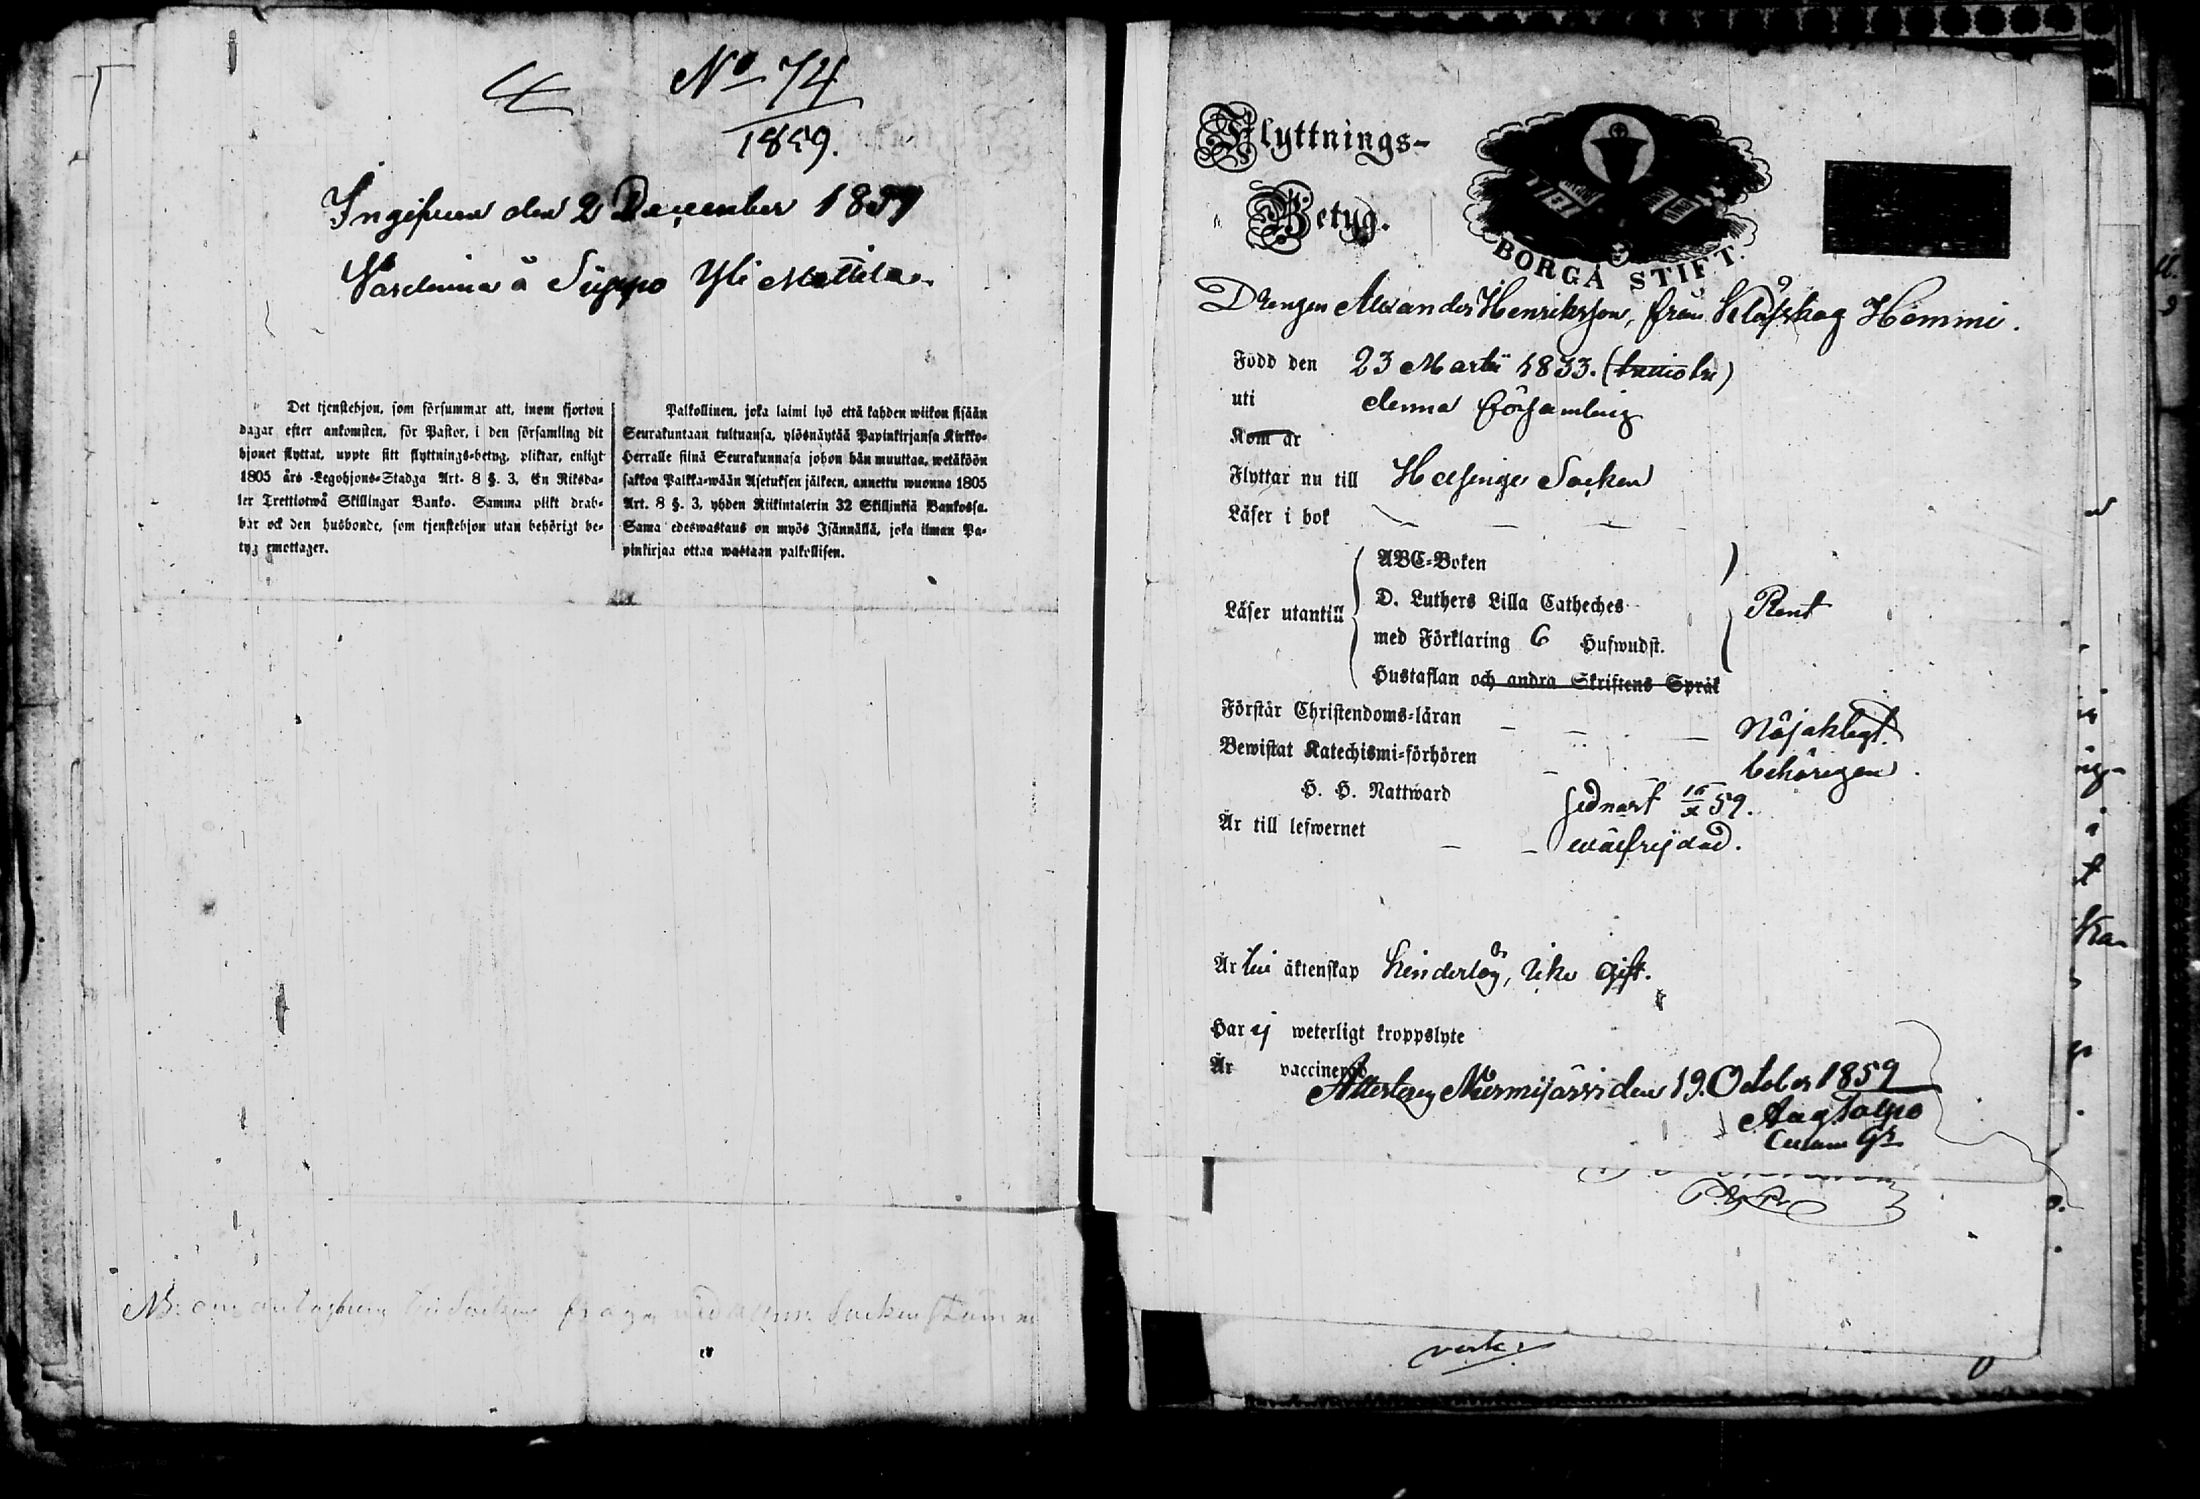 No 74
1859.
Ingifven den 2 December 1859
Vardemia å Siippo Yli Mattila.
Det tjenstehjon, som försummar att, inom fjorton
dagar efter ankomsten, för Pastor, i den församling dit
hjonet flyttat, uppte sitt flyttnings-betyg, pliktar, enligt
1805 års Legohjons-Stadga Art. 8 §. 3, En Riksda-
ler Trettiotwå Skillingar Banko. Samma plikt drab-
bar ock den husbonde, som tjenstehjon utan behörigt be-
tyg emottager.
Palkollinen, joka laimi lyö että kahden wiikon sisään
Seurakuntaan tultuansa, ylösnäytää Papinkirjansa Kirkko-
Herralle siinä Seurakunnasa johon hän muuttaa, wetäköön
sakkoa Palkka-wään Asetuksen jälkeen, annettu wuonna 1805
Art. 8 §. 3, yhden Riikintalerin 32 Skillinkiä Bankossa.
Sama edeswastaus on myös Isännällä, joka ilman Pa-
pinkirjaa ottaa wastaan palkollisen.
NB: om antagning till Socken fråga Socken
Flyttnings-
Betyg.
BORGÅ STIFT.
Drengen Alexander Henriksson, från Klöfskog Hemmi.
Född den 23 Martii 1833.
uti denna församling
Kom år
Flyttar nu till Helsinge Socken
Läser i bok
Läser utantill
ABC-Boken
D. Luthers Lilla Catheches
med Förklaring 6 Hufwudst.
Hustaflan och andra Skriftens Språk
Rent
Förstår Christendoms-läran Nöjaktigt.
Bewistat Katechismi-förhören behörigen.
H. H. Nattward sednast 16/X 59.
Är till lefwernet wälfrejdad.
Är till äktenskap hinderlös, icke gift.
Har ej weterligt kroppslyte
Är vaccinerad
Attesterar Nurmijärvi den 19. October 1859
Aug Talpo